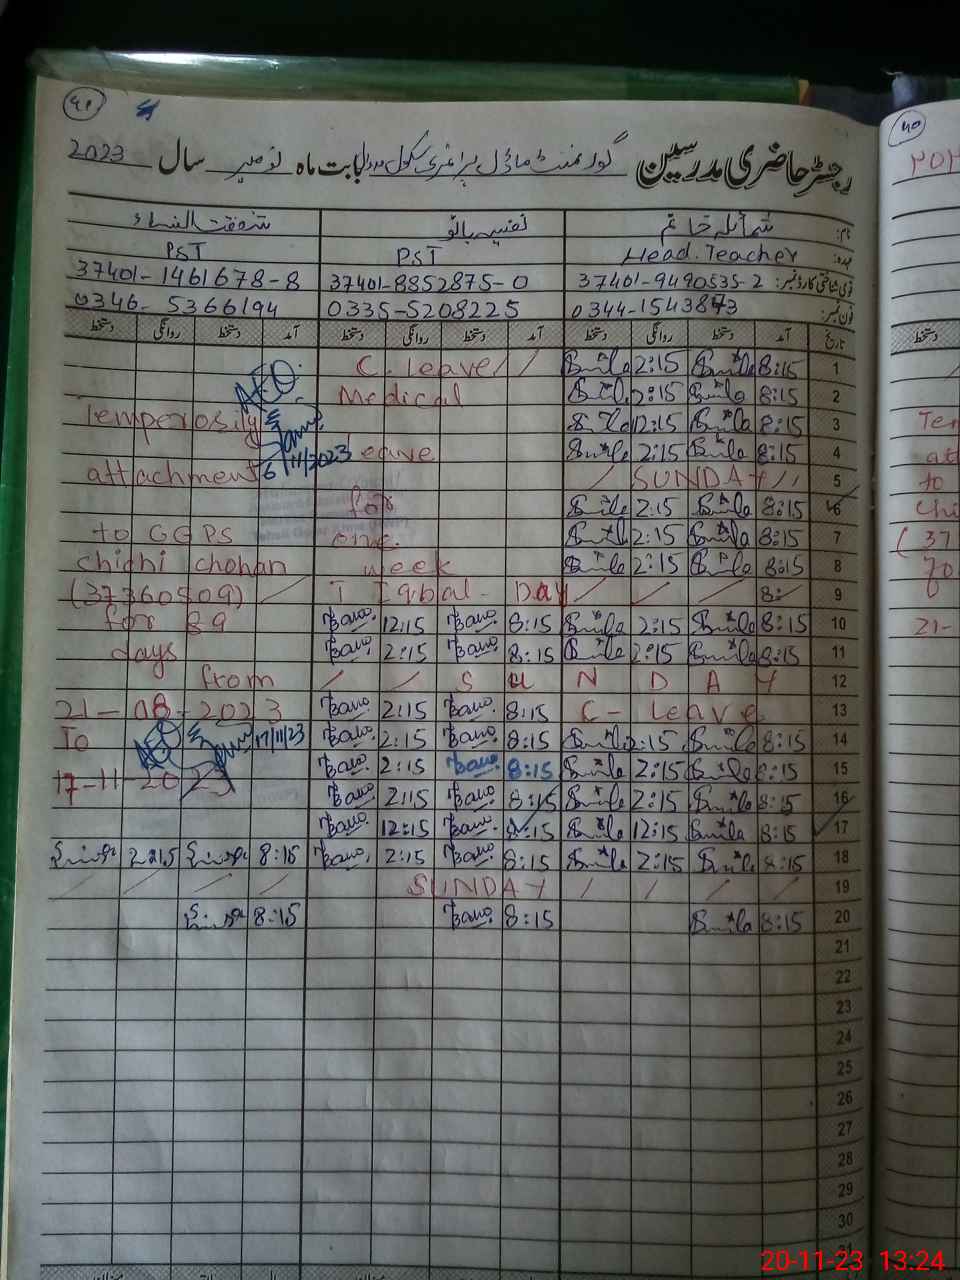 رجسٹر حاضری مدرسین گورنمنٹ ماڈل پرائمری سکول بابت ماہ نومبر سال 2023
نام: شمائلہ خانم نفیسہ بانو شفقت النساء
عہدہ: Head.Teacher PST PST
قومی شناختی کارڈ نمبر: 37401-9490535-2 37401-8852875-0 37401-1461678-8
فون نمبر: 0344-1543873 0335-5208225 0346-5366194
تاریخ آمد دستخط روانگی دستخط آمد دستخط روانگی دستخط آمد دستخط روانگی دستخط
1 8:15 Smile 2:15 Smile C. Leave
2 8:15 Smile 2:15 Smile Medical A.E.O.
3 8:15 Smile 12:15 Smile Temperosily
4 8:15 Smile 2:15 Smile Leave
5 SUNDAY attachment 6/11/2023
6 8:15 Smile 2:15 Smile for
7 8:15 Smile 2:15 Smile one. to GGPS
8 8:15 Smile 2:15 Smile week chidhi chohan
9 8: I Iqbal- Day (37360509)
10 8:15 Smile 2:15 Smile 8:15 Bano. 12:15 Bano. for 89
11 8:15 Smile 2:15 Smile 8:15 Bano. 2:15 Bano. days
12 SUNDAY from
13 C- Leave 8:15 Bano. 2:15 Bano. 21-08-2023
14 8:15 Smile 2:15 Smile 8:15 Bano. 2:15 Bano. To 17/11/23
15 8:15 Smile 2:15 Smile 8:15 Bano. 2:15 Bano. 17-11-2023
16 8:15 Smile 2:15 Smile 8:15 Bano. 2:15 Bano.
17 8:15 Smile 12:15 Smile 8:15 Bano. 12:15 Bano.
18 8:15 Smile 2:15 Smile 8:15 Bano. 2:15 Bano. 8:15 2:15
19 SUNDAY
20 8:15 Smile 8:15 Bano. 8:15
21
22
23
24
25
26
27
28
29
30
31
20-11-23 13:24